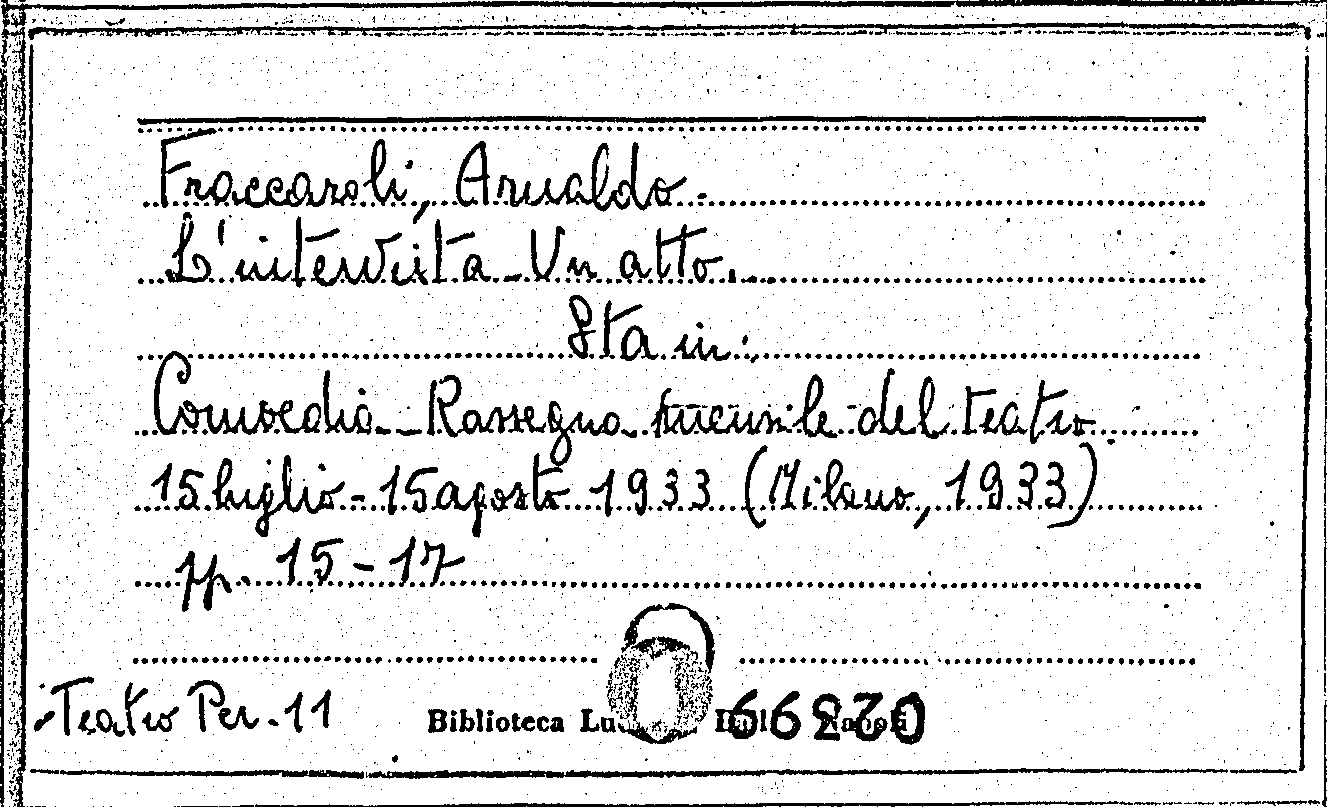 Fraccaroli, Arnaldo.
L'intervista - Un atto.
Sta in:
Comoedia - Rassegna mensile del teatro.
15 luglio - 15 agosto 1933 (Milano, 1933)
pp. 15-17
Teatro Per. 11
Biblioteca